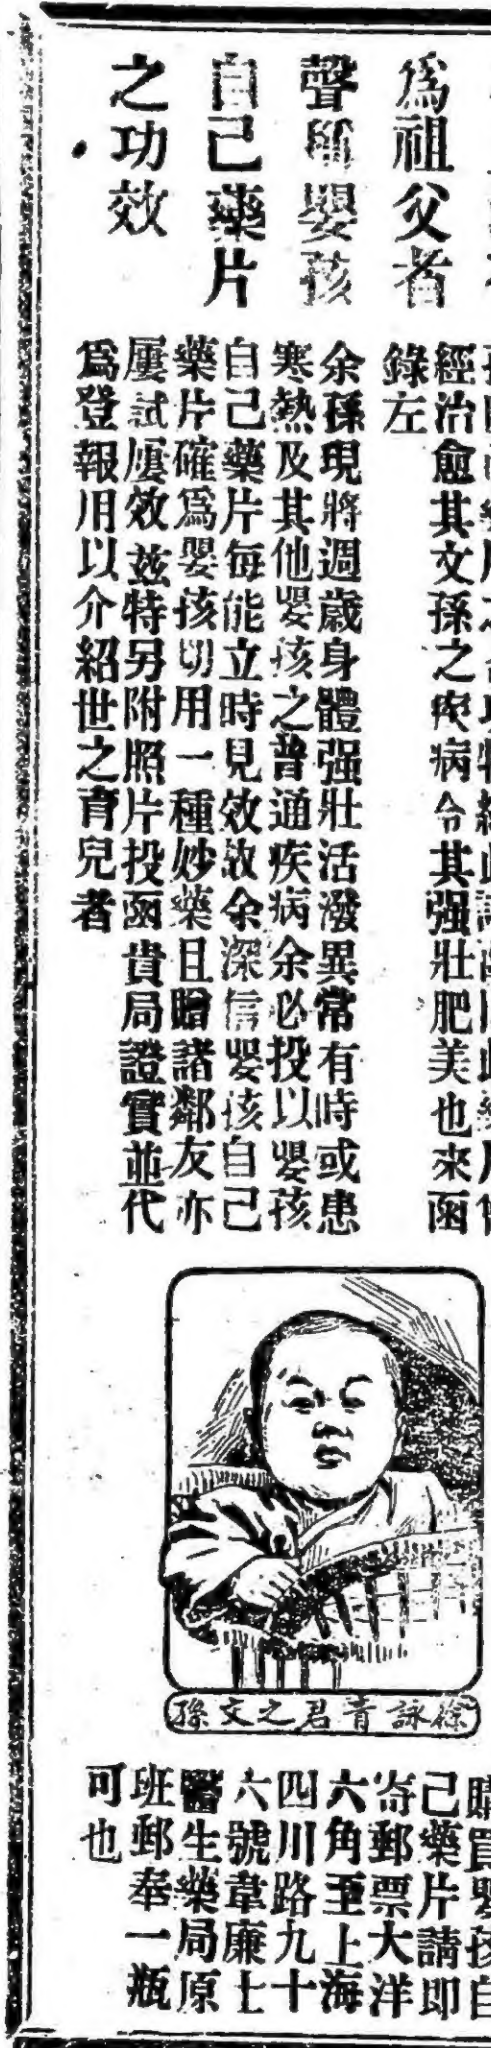 爲祖父者
聲稱嬰孩
自己藥片
之功效
經治愈其文孫之疾病令其强壯肥美也來函
錄左
余孫現將週歲身體强壯活潑異常有時或患
寒熱及其他嬰孩之普通疾病余必投以嬰孩
自己藥片每能立時見效故余深信嬰孩自己
藥片確爲嬰孩切用一種妙藥且贈諸鄰友亦
屢試屢效茲特另附照片投函貴局證實並代
爲登報用以介紹世之育兒者
徐詠青君之文孫
購買嬰孩自
己藥片請即
寄郵票大洋
六角至上海
四川路九十
六號韋廉士
醫生藥局原
班郵奉一瓶
可也